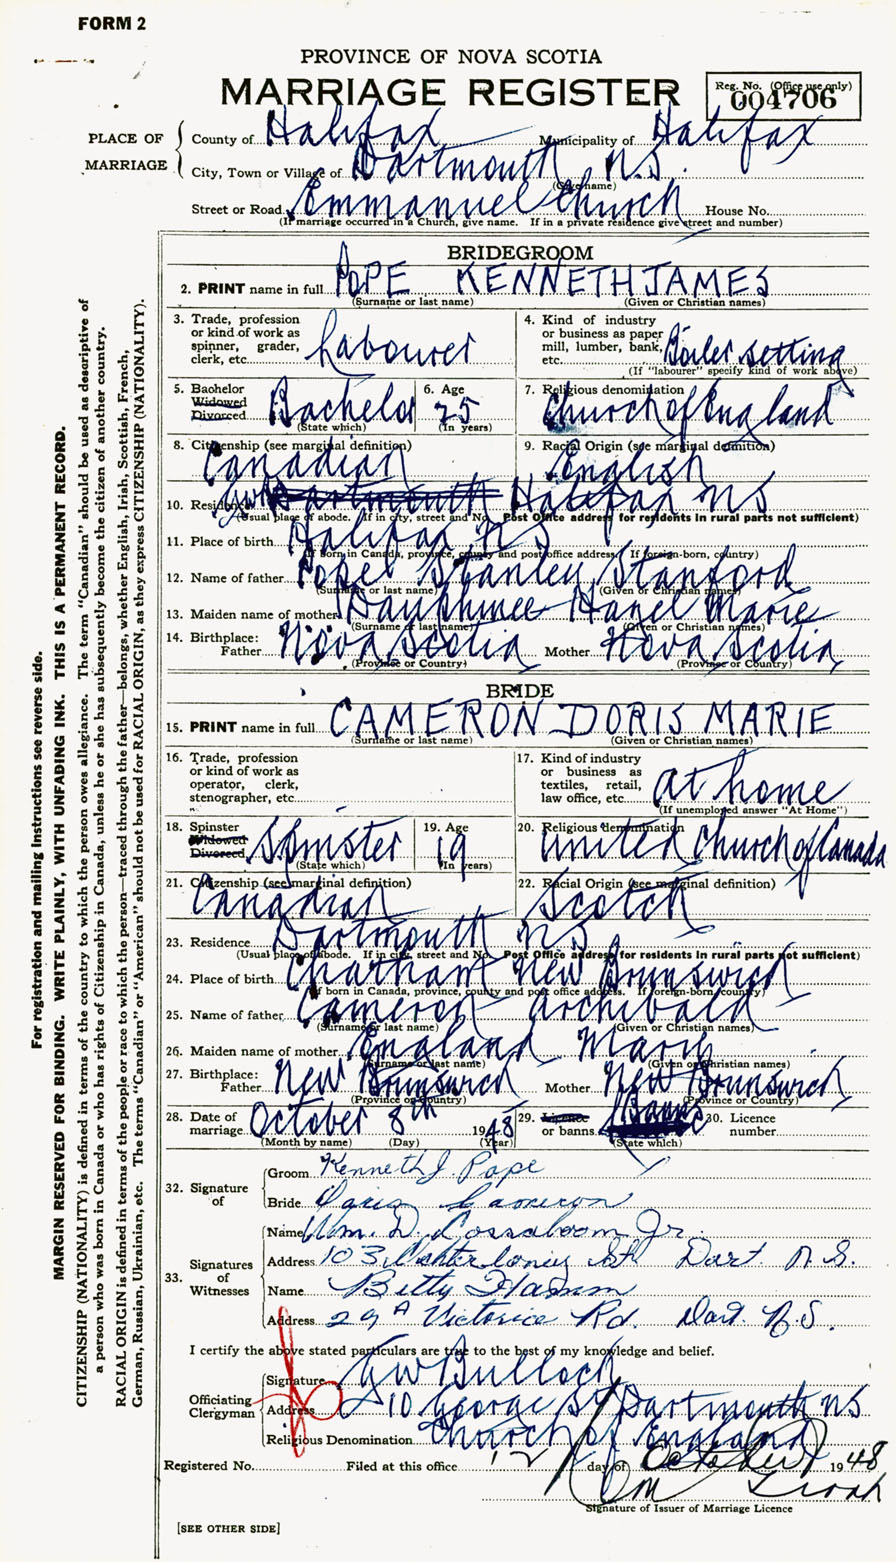 FORM 2
PROVINCE OF NOVA SCOTIA
MARRIAGE REGISTER
Reg. No. (Office use only)
004706
PLACE OF MARRIAGE
County of Halifax Municipality of Halifax
City, Town or Village of Dartmouth N.S.
(Give name)
Street or Road Emmanuel Church House No.
(If marriage occurred in a Church, give name. If in a private residence give street and number)
BRIDEGROOM
2. PRINT name in full POPE KENNETH JAMES
(Surname or last name) (Given or Christian names)
3. Trade, profession or kind of work as spinner, grader, clerk, etc. Labourer
4. Kind of industry or business as paper mill, lumber, bank, etc. Boiler setting
(If "labourer" specify kind of work above)
5. Bachelor Widowed Divorced Bachelor
(State which)
6. Age 25
(In years)
7. Religious denomination Church of England
8. Citizenship (see marginal definition) Canadian
9. Racial Origin (see marginal definition) English
10. Residence Dartmouth Halifax NS
(Usual place of abode. If in city, street and No. Post Office address for residents in rural parts not sufficient)
11. Place of birth Halifax NS
(If born in Canada, province, county and post office address. If foreign-born, country)
12. Name of father Pope Stanley Stanford
(Surname or last name) (Given or Christian names)
13. Maiden name of mother Dauphinee Hazel Marie
(Surname or last name) (Given or Christian names)
14. Birthplace: Father Nova Scotia Mother Nova Scotia
(Province or Country) (Province or Country)
BRIDE
15. PRINT name in full CAMERON DORIS MARIE
(Surname or last name) (Given or Christian names)
16. Trade, profession or kind of work as operator, clerk, stenographer, etc.
17. Kind of industry or business as textiles, retail, law office, etc. at home
(If unemployed answer "At Home")
18. Spinster Widowed Divorced Spinster
(State which)
19. Age 19
(In years)
20. Religious denomination United Church of Canada
21. Citizenship (see marginal definition) Canadian
22. Racial Origin (see marginal definition) Scotch
23. Residence Dartmouth NS
(Usual place of abode. If in city, street and No. Post Office address for residents in rural parts not sufficient)
24. Place of birth Chatham New Brunswick
(If born in Canada, province, county and post office address. If foreign-born, country)
25. Name of father Cameron Archibald
(Surname or last name) (Given or Christian names)
26. Maiden name of mother England Mary
(Surname or last name) (Given or Christian names)
27. Birthplace: Father New Brunswick Mother New Brunswick
(Province or Country) (Province or Country)
28. Date of marriage October 8th 1948
(Month by name) (Day) (Year)
29. Licence or banns Banns
(State which)
30. Licence number
32. Signature of
Groom Kenneth J. Pope
Bride Doris Cameron
33. Signatures of Witnesses
Name Wm. D. Cossaboom Jr.
Address 103 St Dart. N.S.
Name Betty Hamm
Address 29A Victoria Rd. Dart. N.S.
I certify the above stated particulars are true to the best of my knowledge and belief.
Officiating Clergyman
Signature GW Bullock
Address 10 George St Dartmouth NS
Religious Denomination Church of England
Registered No. Filed at this office 12 day of October 1948
Signature of Issuer of Marriage Licence
[SEE OTHER SIDE]
For registration and mailing instructions see reverse side.
MARGIN RESERVED FOR BINDING. WRITE PLAINLY, WITH UNFADING INK. THIS IS A PERMANENT RECORD.
CITIZENSHIP (NATIONALITY) is defined in terms of the country to which the person owes allegiance. The term "Canadian" should be used as descriptive of
a person who was born in Canada or who has rights of Citizenship in Canada, unless he or she has subsequently become the citizen of another country.
RACIAL ORIGIN is defined in terms of the people or race to which the person—traced through the father—belongs, whether English, Irish, Scottish, French,
German, Russian, Ukrainian, etc. The terms "Canadian" or "American" should not be used for RACIAL ORIGIN, as they express CITIZENSHIP (NATIONALITY).